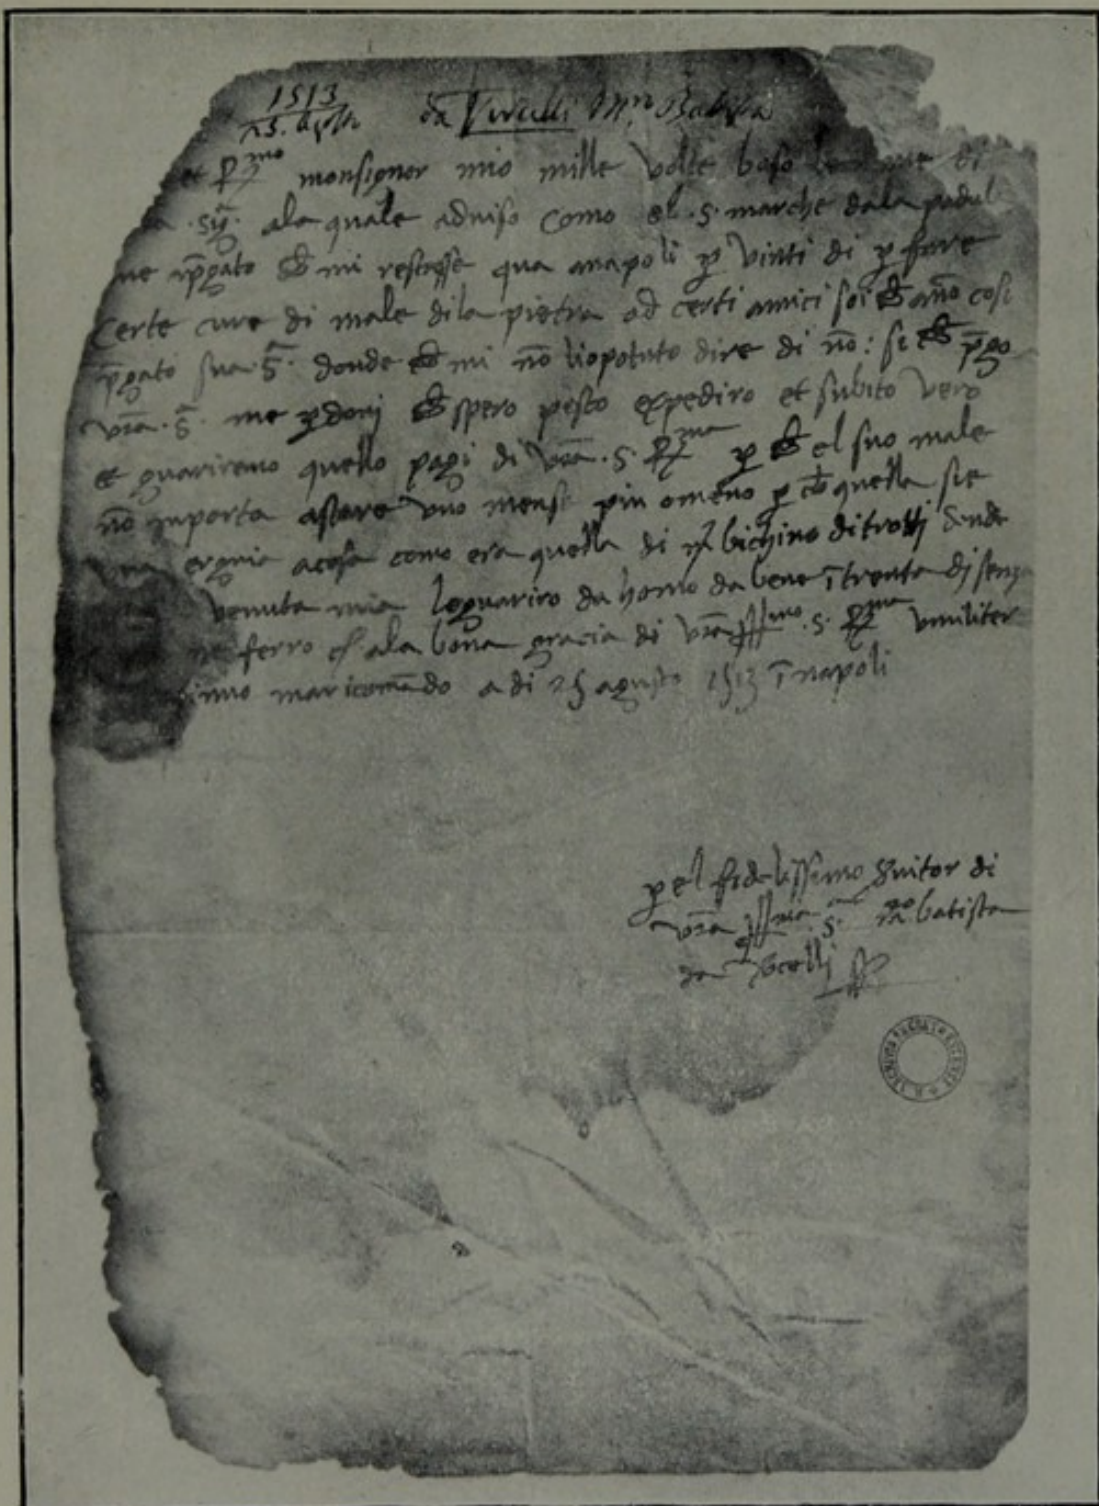 1513
25. Agosto
da Vercelli Mro Batista
et Rmo monsignor mio mille volte baso le di
.S. ala quale adviso como el .S. marche dala padula
me pgato che mi restasse qua anapoli p vinti di p fare
Certe cure di male dila pietra ad certi amici soi che ano cosi
pgato sua .S. donde che mi no liopotuto dire di no: si che pgo
vra .S. me pdoni che spero psto expediro et subito vero
et guariremo quello pagi di vra .S. Rma p che el suo male
no inporta astare uno mense piu omeno p che quella sie
ergnia acosa como era quella di bichino di trotti dende
venuta mia loguariro da homo da bene i trenta di senza
ferro ala bona gracia di vra .S. Rma umiliter
maricomado a di 25 agusto 1513 i napoli
p el fidelissimo svitor di
vra .S. mro batista
da vcelli